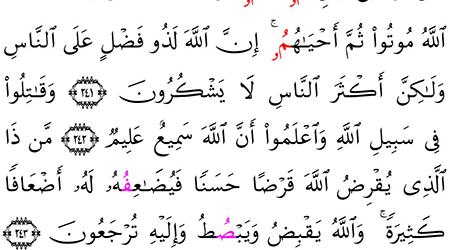 اللَّهُ مُوتُوا۟ ثُمَّ أَحْيَـٰهُمُۥ ۚ إِنَّ اللَّهَ لَذُو فَضْلٍ عَلَى النَّاسِ
وَلَـٰكِنَّ أَكْثَرَ النَّاسِ لَا يَشْكُرُونَ ﴿٢٤١﴾ وَقَـٰتِلُوا۟
فِى سَبِيلِ اللَّهِ وَاعْلَمُوا۟ أَنَّ اللَّهَ سَمِيعٌ عَلِيمٌ ﴿٢٤٢﴾ مَّن ذَا
الَّذِى يُقْرِضُ اللَّهَ قَرْضًا حَسَنًا فَيُضَـٰعِفُهُۥ لَهُۥ أَضْعَافًا
كَثِيرَةً ۚ وَاللَّهُ يَقْبِضُ وَيَبْصُطُ وَإِلَيْهِ تُرْجَعُونَ ﴿٢٤٣﴾